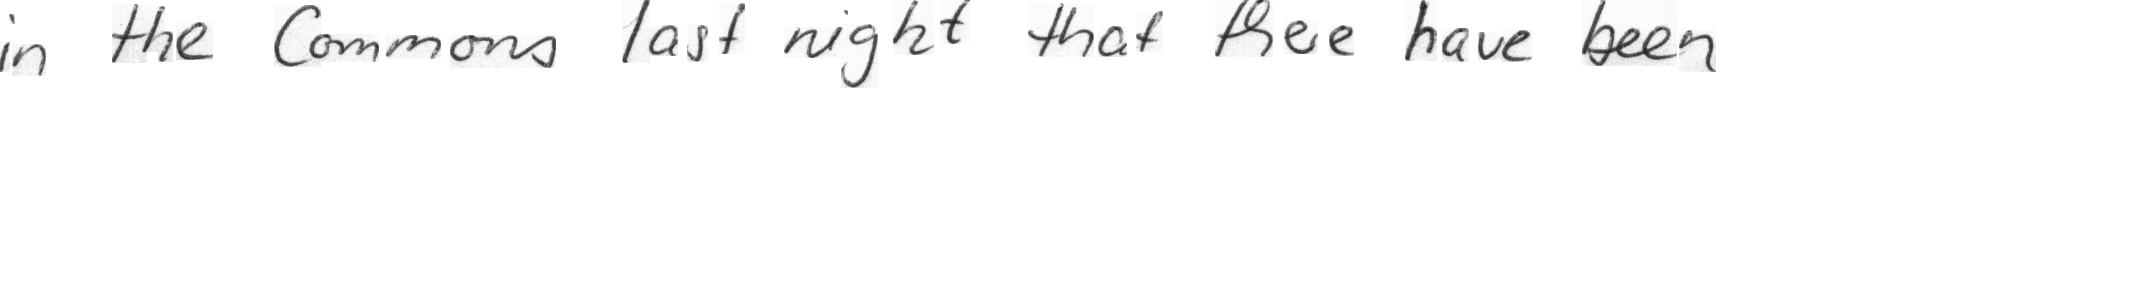 in the Commons last night that there have been